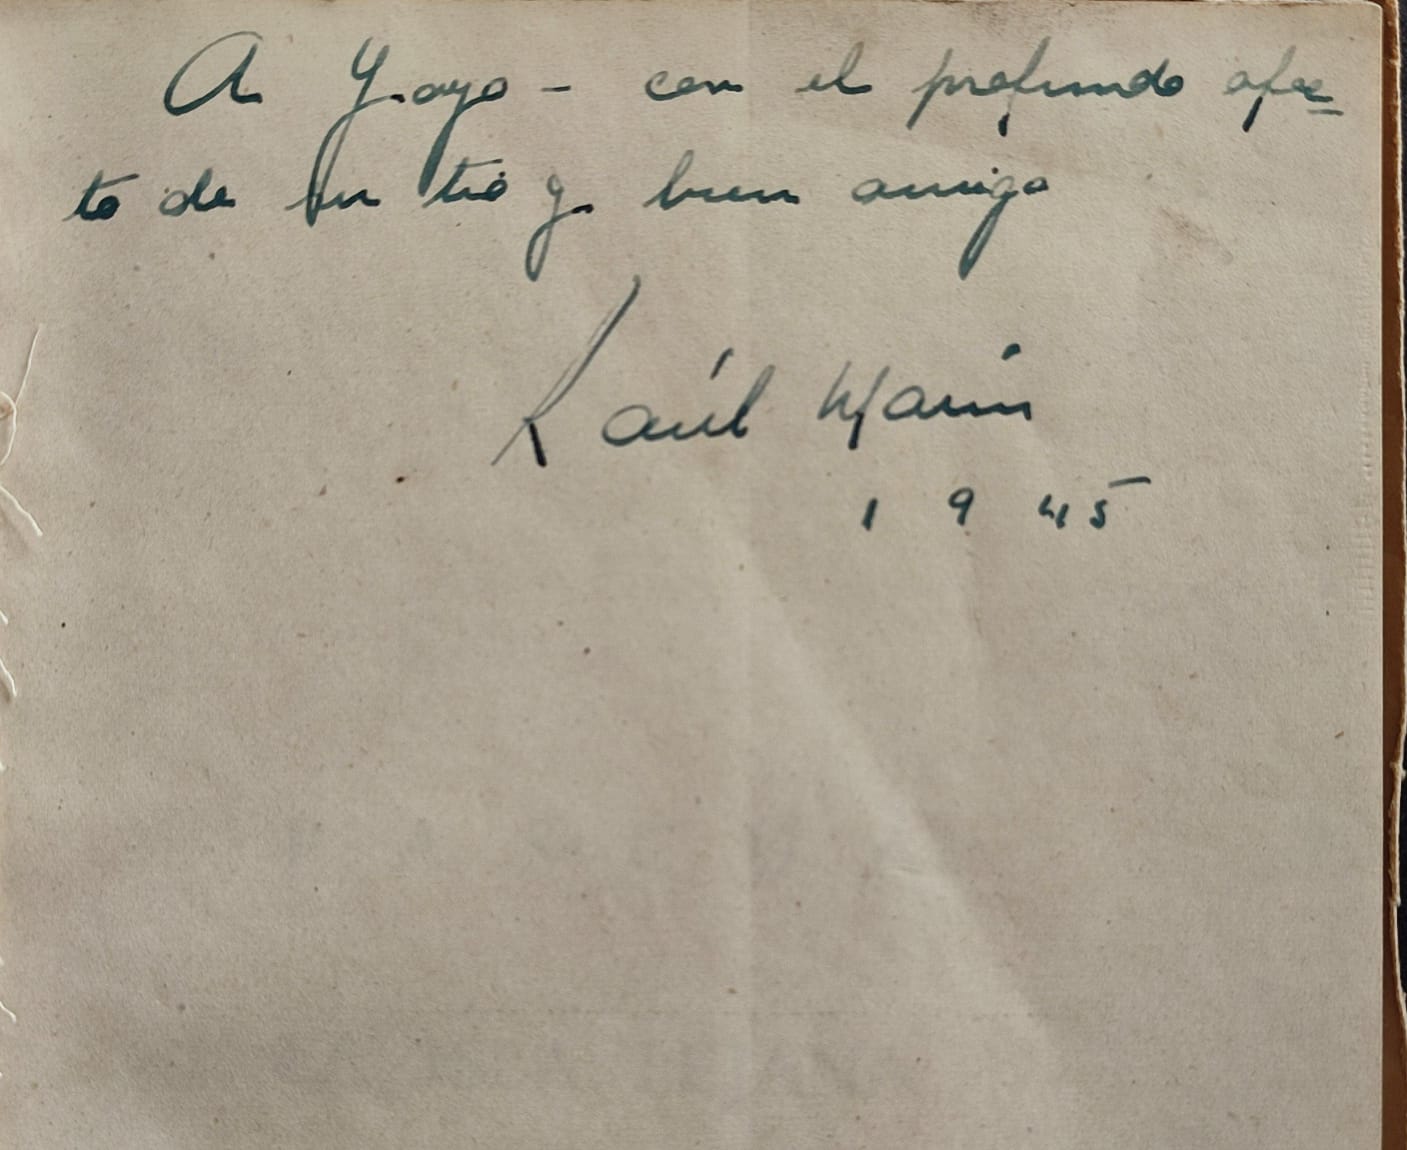 A Yayo - con el profundo afec-
to de su tío y buen amigo
Raúl Marín
1945